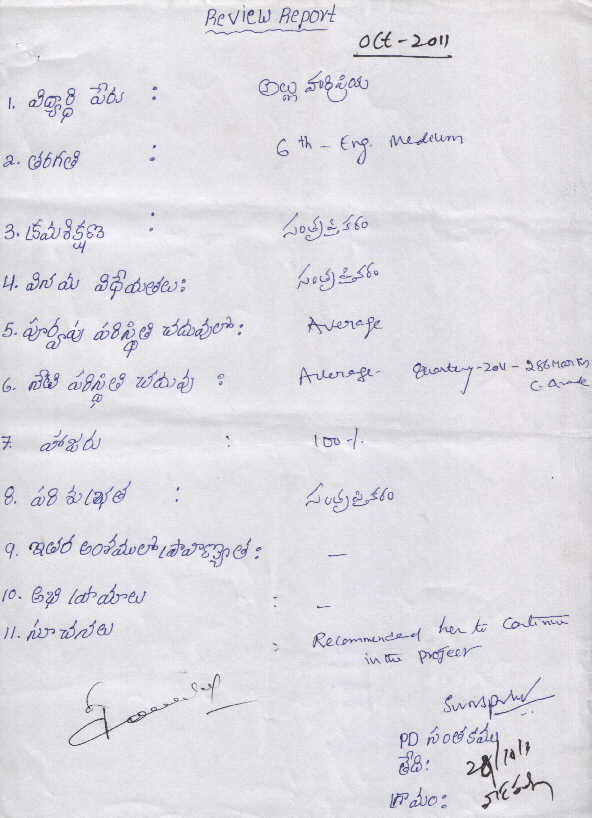 Review Report
Oct-2011
1. విద్యార్థి పేరు : అల్లు హరిప్రియ
2. తరగతి : 6 th - Eng. Medium
3. క్రమశిక్షణ : సంతృప్తికరం
4. వినయ విధేయతలు: సంతృప్తికరం
5. పూర్వపు పరిస్థితి చదువులో: Average
6. నేటి పరిస్థితి చదువు : Average- Quarterly-2011-286 Marks
C-Grade
7. హాజరు : 100-/.
8. పరిశుభ్రత : సంతృప్తికరం
9. ఇతర అంశములలో ప్రావీణ్యత: —
10. అభిప్రాయాలు : -
11. సూచనలు : Recommended her to continue
in the project
PD సంతకము
తేది: 28/10/11
గ్రామం: